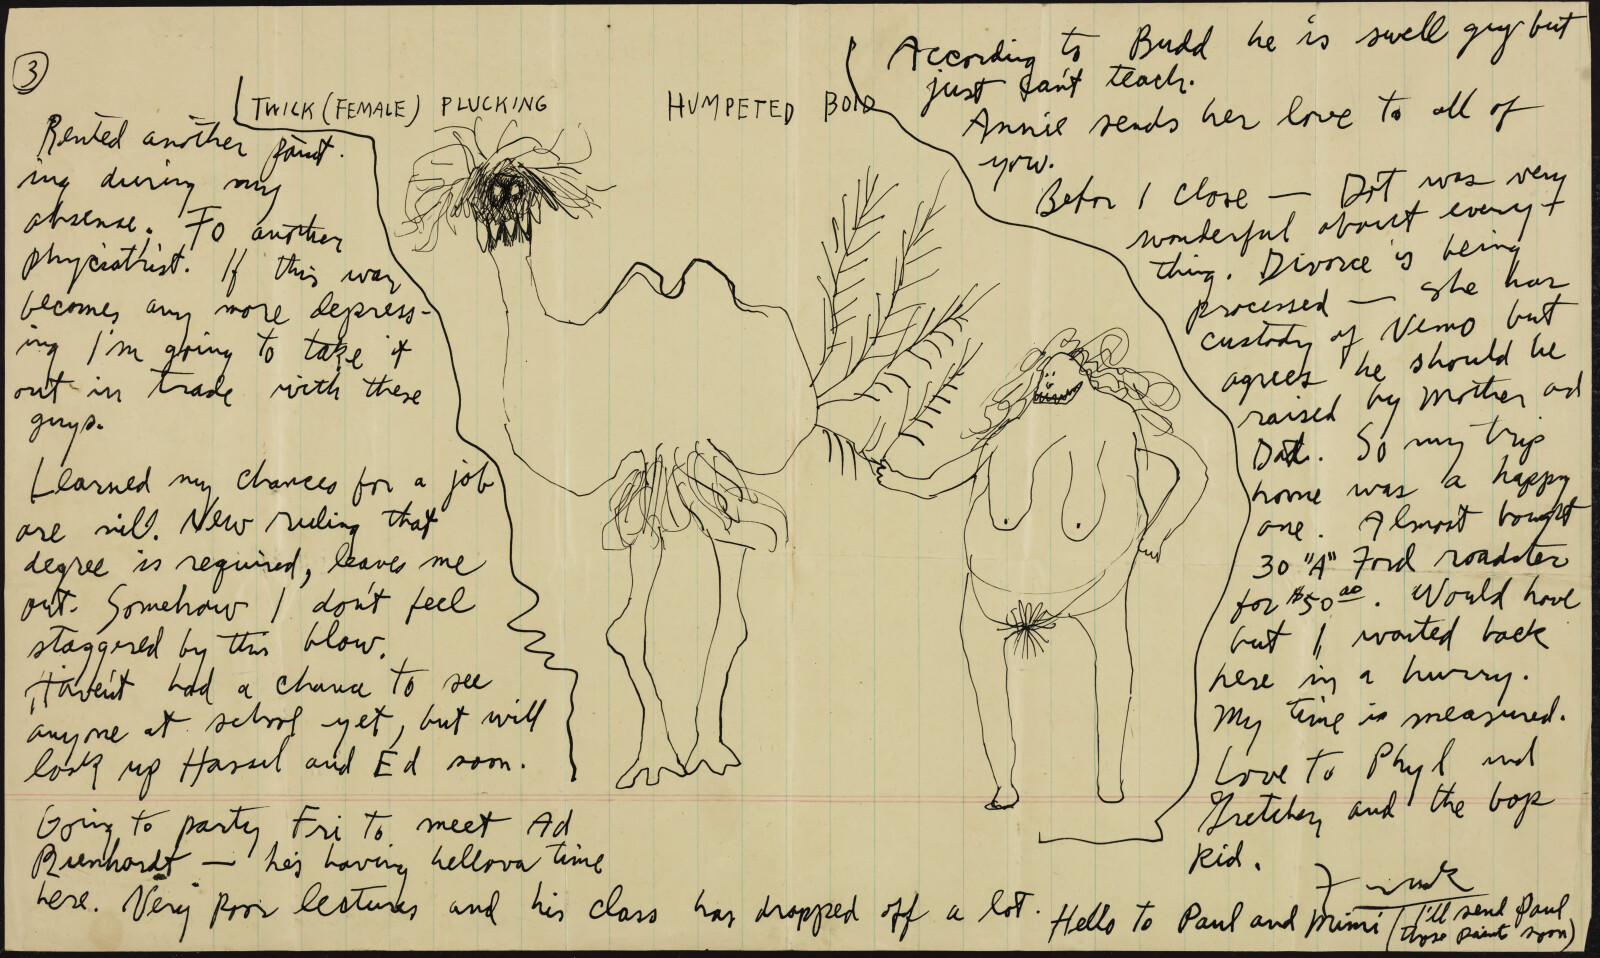 3
TWICK (FEMALE) PLUCKING HUMPETED BOID
Rented another paint-
ing during my
absense. To another
phyciatrist. If this way
becomes any more depress-
ing I'm going to take it
out in trade with these
guys.
Learned my chances for a job
are nill. New ruling that
degree is required, leaves me
out. Somehow I don't feel
staggered by this blow.
Haven't had a chance to see
anyone at school yet, but will
look up Hassel and Ed soon.
Going to party Fri to meet Ad
Rienhardt — he's having hellova time
here. Very poor lectures and his class has dropped off a lot.
According to Budd he is swell guy but
just can't teach.
Annie sends her love to all of
you.
Before I close — Dot was very
wonderful about every-
thing. Divorce is being
processed — she has
custody of Nemo but
agrees he should be
raised by Mother and
Dad. So my trip
home was a happy
one. Almost bought
30 "A" Ford roadster
for $50.00. Would have
but I wanted back
here in a hurry.
My time is measured.
Love to Phyl and
Gretchen and the bop
kid.
Hello to Paul and Mimi (I'll send Paul
those paints soon)